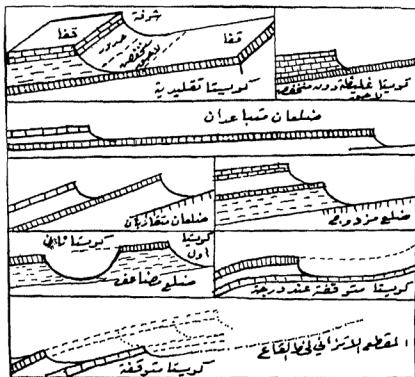 شرفة
قفا
حدور
منخفض
لاحق
قفا
كويستا تقليدية
كويستا غليظة دون منخفض
لاحق
ضلعان متباعدان
ضلعان متقاربان
ضلع مزدوج
كويستا ثاني
كويستا
أول
ضلع مضاعف
كويستا متوقفة عند درجة
المقطع الانزالي لخط القاع
كويستا متوقفة